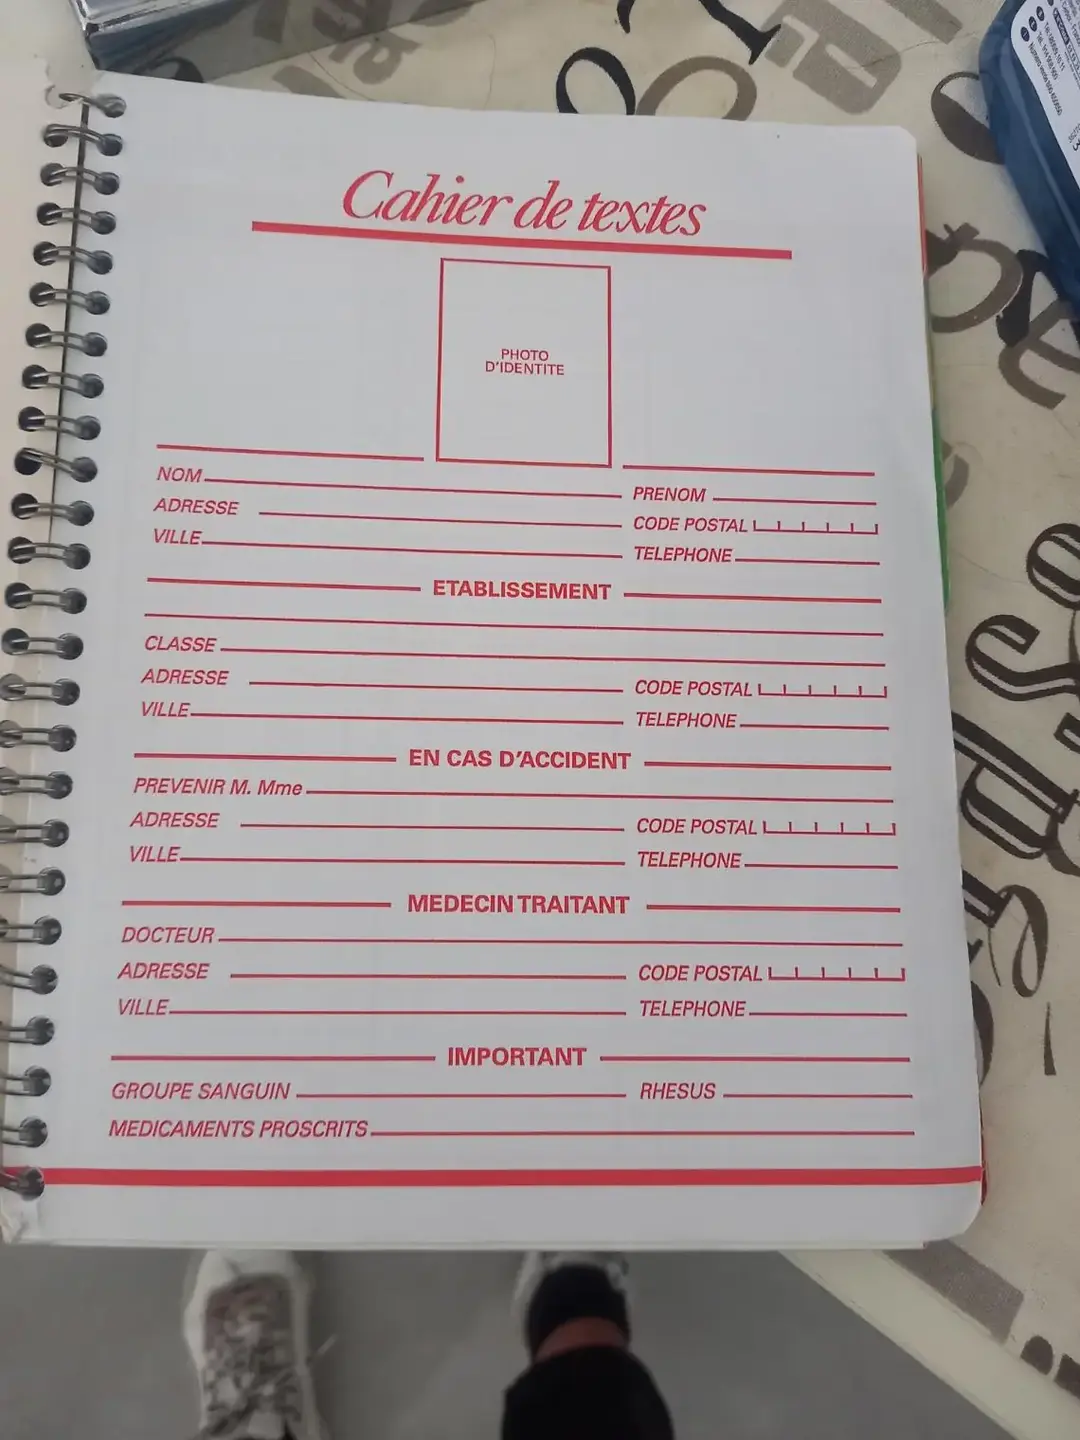 Cahier de textes
PHOTO
D'IDENTITE
NOM PRENOM
ADRESSE CODE POSTAL
VILLE TELEPHONE
ETABLISSEMENT
CLASSE
ADRESSE CODE POSTAL
VILLE TELEPHONE
EN CAS D'ACCIDENT
PREVENIR M. Mme
ADRESSE CODE POSTAL
VILLE TELEPHONE
MEDECIN TRAITANT
DOCTEUR
ADRESSE CODE POSTAL
VILLE TELEPHONE
IMPORTANT
GROUPE SANGUIN RHESUS
MEDICAMENTS PROSCRITS